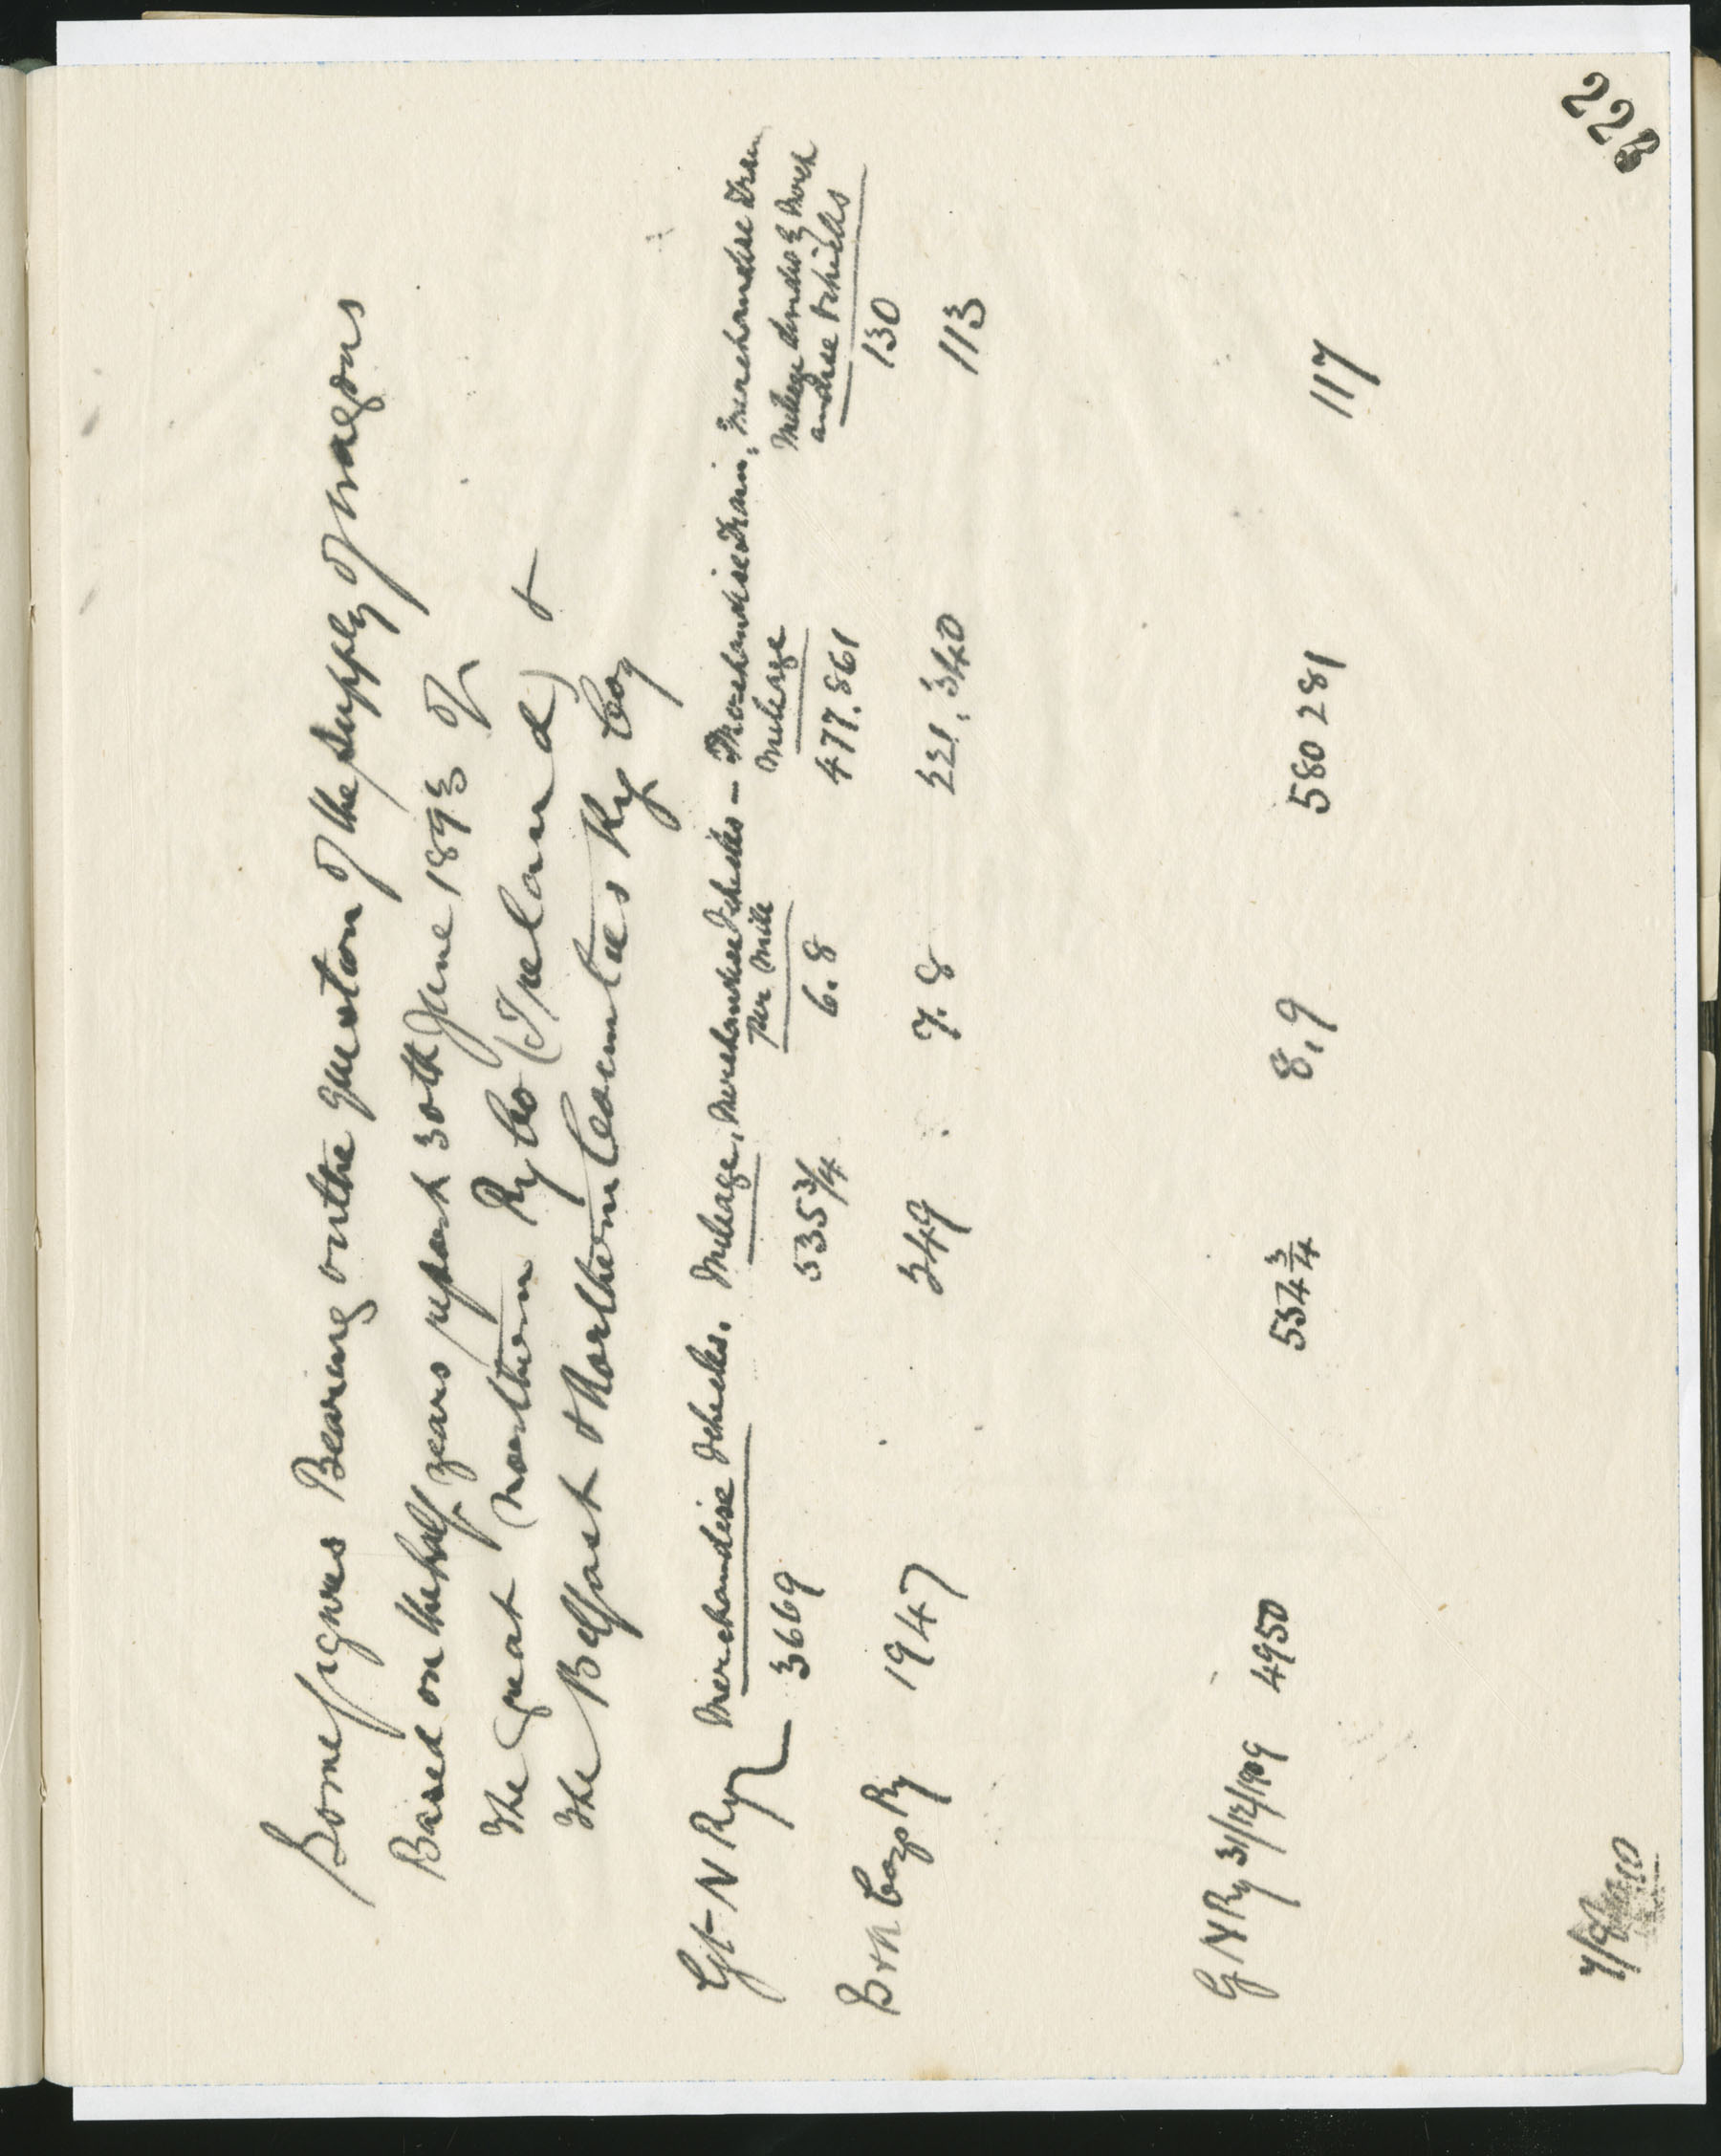 Some figures Bearing on the question of the supply of wagons
Based on the half years report 30th June 1893 of
the Great Northern Ry Co (Ireland) &
the Belfast & Northern Counties Ry Coy
Merchandise Vehicles. Mileage, Merchandise Vehicles – Merchandise Train, Merchandise Train
Per Mile Mileage Mileage divided by Merch
andise Vehicles
Gt N Ry 3669 535 3/4 6.8 477.861 130
B & N Cos Ry 1947 249 7.8 221.340 113
G N Ry 31/12/1909 4950 554 3/4 8.9 580 281 117
223